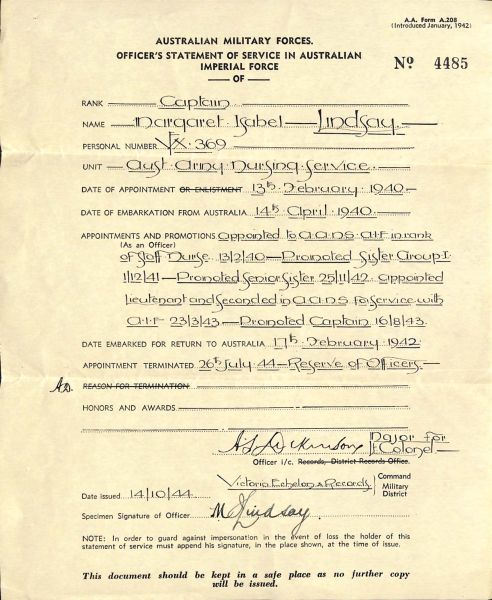 A.A. Form A.208
(Introduced January, 1942)
AUSTRALIAN MILITARY FORCES.
OFFICER'S STATEMENT OF SERVICE IN AUSTRALIAN
IMPERIAL FORCE
— OF —
No 4485
RANK Captain
NAME Margaret Isabel Lindsay
PERSONAL NUMBER VFX 369
UNIT Aust. Army Nursing Service
DATE OF APPOINTMENT OR ENLISTMENT 13th February 1940
DATE OF EMBARKATION FROM AUSTRALIA 14th April 1940
APPOINTMENTS AND PROMOTIONS Appointed to A.A.N.S A.I.F in rank
(As an Officer)
of Staff Nurse 13/2/40—Promoted Sister Group I
1/12/41—Promoted Senior Sister 25/11/42 appointed
Lieutenant and Seconded in A.A.N.S for Service with
A.I.F 23/3/43—Promoted Captain 16/8/43
DATE EMBARKED FOR RETURN TO AUSTRALIA 17th February 1942
APPOINTMENT TERMINATED 26th July 44—Reserve of Officers
REASON FOR TERMINATION
HONORS AND AWARDS
Major for
Lt Colonel
Officer i/c. Records, District Records Office.
Victoria Echelon & Records Command
Military
District
Date issued 14/10/44
Specimen Signature of Officer M Lindsay
NOTE: In order to guard against impersonation in the event of loss the holder of this
statement of service must append his signature, in the place shown, at the time of issue.
This document should be kept in a safe place as no further copy
will be issued.